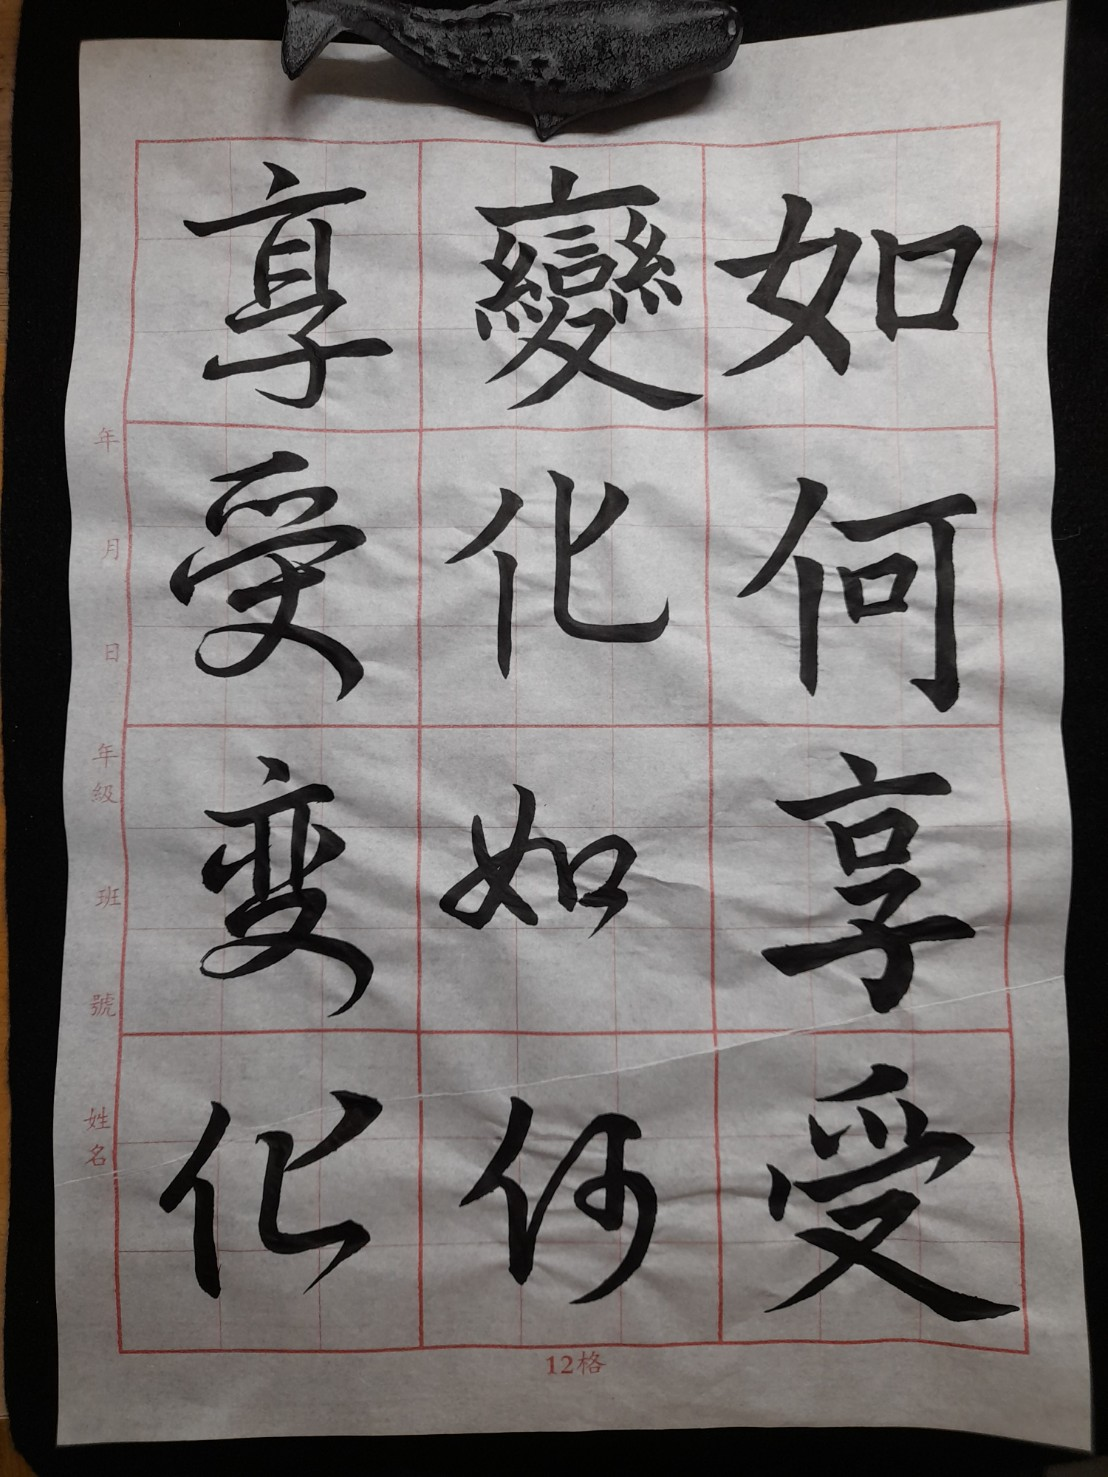 如何享受
變化如何
享受変化
年 月 日 年級 班 號 姓名
12格